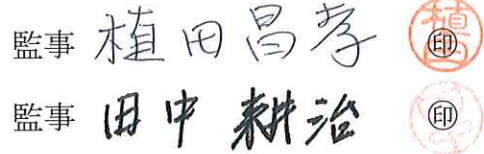 監事 植田昌孝 ㊞
監事 田中耕治 ㊞